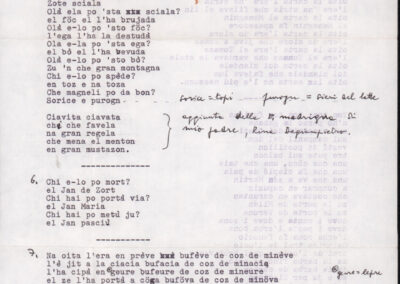 Zote sciala
Olà ela po 'sta xxx sciala?
el föc el l'ha brujada
Olà e-lo po 'sto föc?
l'ega l'ha la destudä
Ola ela po 'sta ega?
el bò el l'ha bevuda
Olà e-lo po 'sto bò?
Zu 'n che gran montagna
Chi e-lo po apède?
en toz e na toza
Che magneli po da bon?
Sorice e purogn - sorice = topi purogn =
Ciavita ciavata
chè che favela
na gran regela
che mena el menton
en gran mustazon.
aggiunta della madrigna di
mio padre,
------------
6. Chi e-lo po mort?
el Jan de Zort
Chi hai po portà via?
el Jan Maria
Chi hai po metù ju?
el Jan pasciù
------------
7. Na oita l'era en prève xxx bufève de coz de minève
l'è jit a la ciacia bufacia de coz de minacia
l'ha cipà en geure bufeure de coz de mineure
el ze l'ha portà a cöga buföva de coz de minöva
geure = lepre